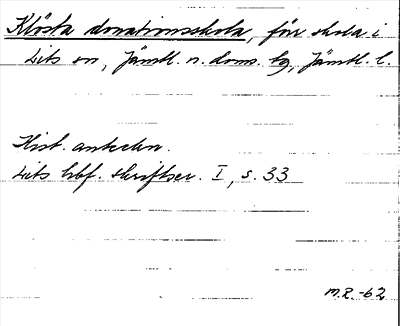 Klösta donationsskola, för skola i
Lits sn, Jämtl. n. doms. tg, Jämtl. l.
Hist. anteckn.
Lits hbf. skriftser. I, s. 33
M.R.-62